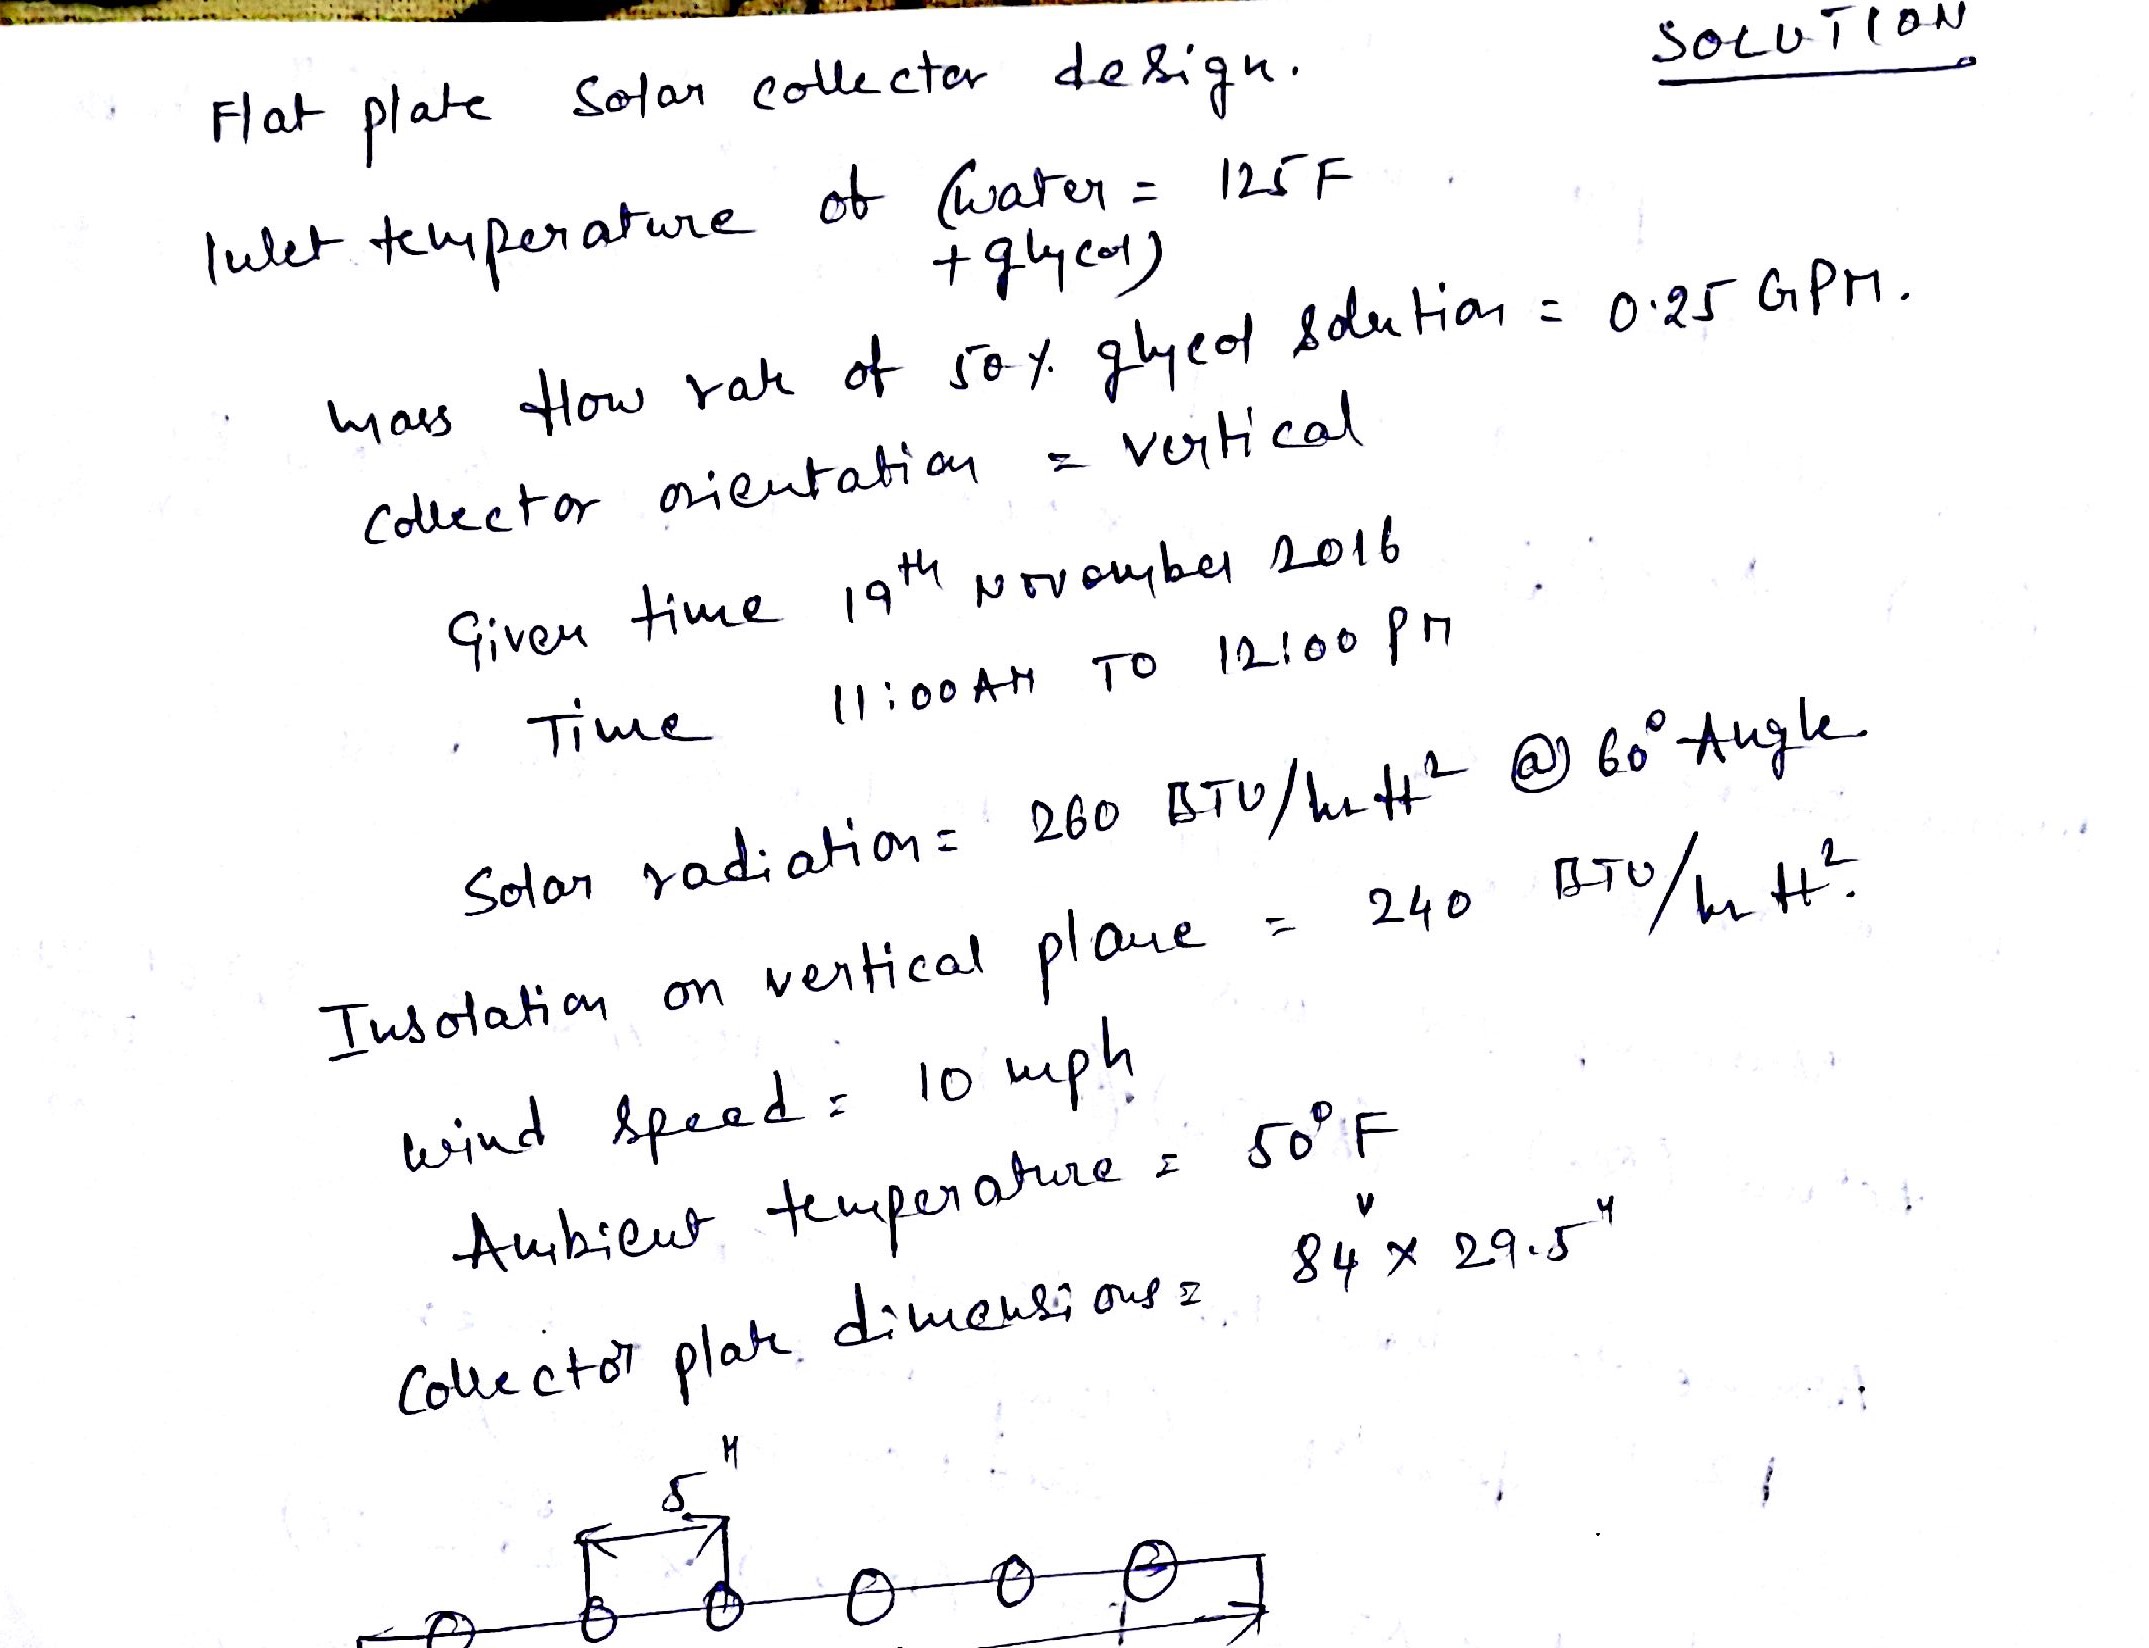 SOLUTION
Flat plate Solar collector design.
Inlet temperature of (water = 125F
+ glycol)
Mass flow rate of 50% glycol solution = 0.25 GPM.
Collector orientation = vertical
Given time 19th November 2016
Time 11:00 AM TO 12:00 PM
Solar radiation = 260 BTU/hr ft² @ 60° Angle
Insolation on vertical plane = 240 BTU/hr ft².
Wind speed = 10 mph.
Ambient temperature = 50°F
Collector plate dimensions = 84" x 29.5"
5"